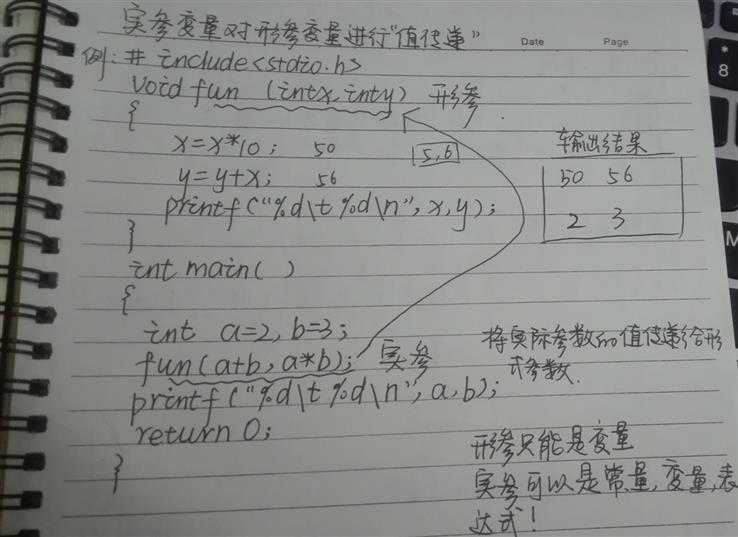 实参变量对形参变量进行"值传递"
Date Page
例: # include<stdio.h>
void fun (int x, int y) 形参
{
x=x*10; 50
5,6
y=y+x; 56
printf("%d\t %d\n", x,y);
}
输出结果
50 56
2 3
int main( )
{
int a=2, b=3;
fun(a+b, a*b); 实参
printf("%d\t %d\n", a,b);
return 0;
}
将实际参数的值传递给形
式参数.
形参只能是变量
实参可以是常量,变量,表
达式!
*
8
M